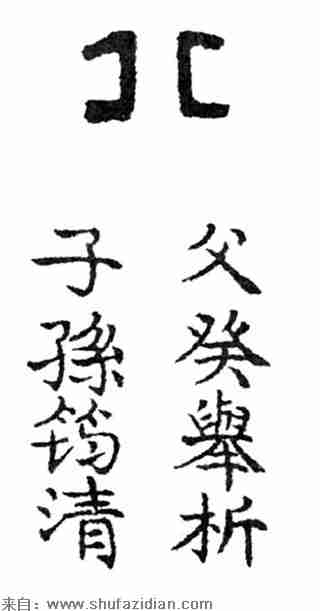 父癸舉析
子孫筠清
来自：www.shufazidian.com